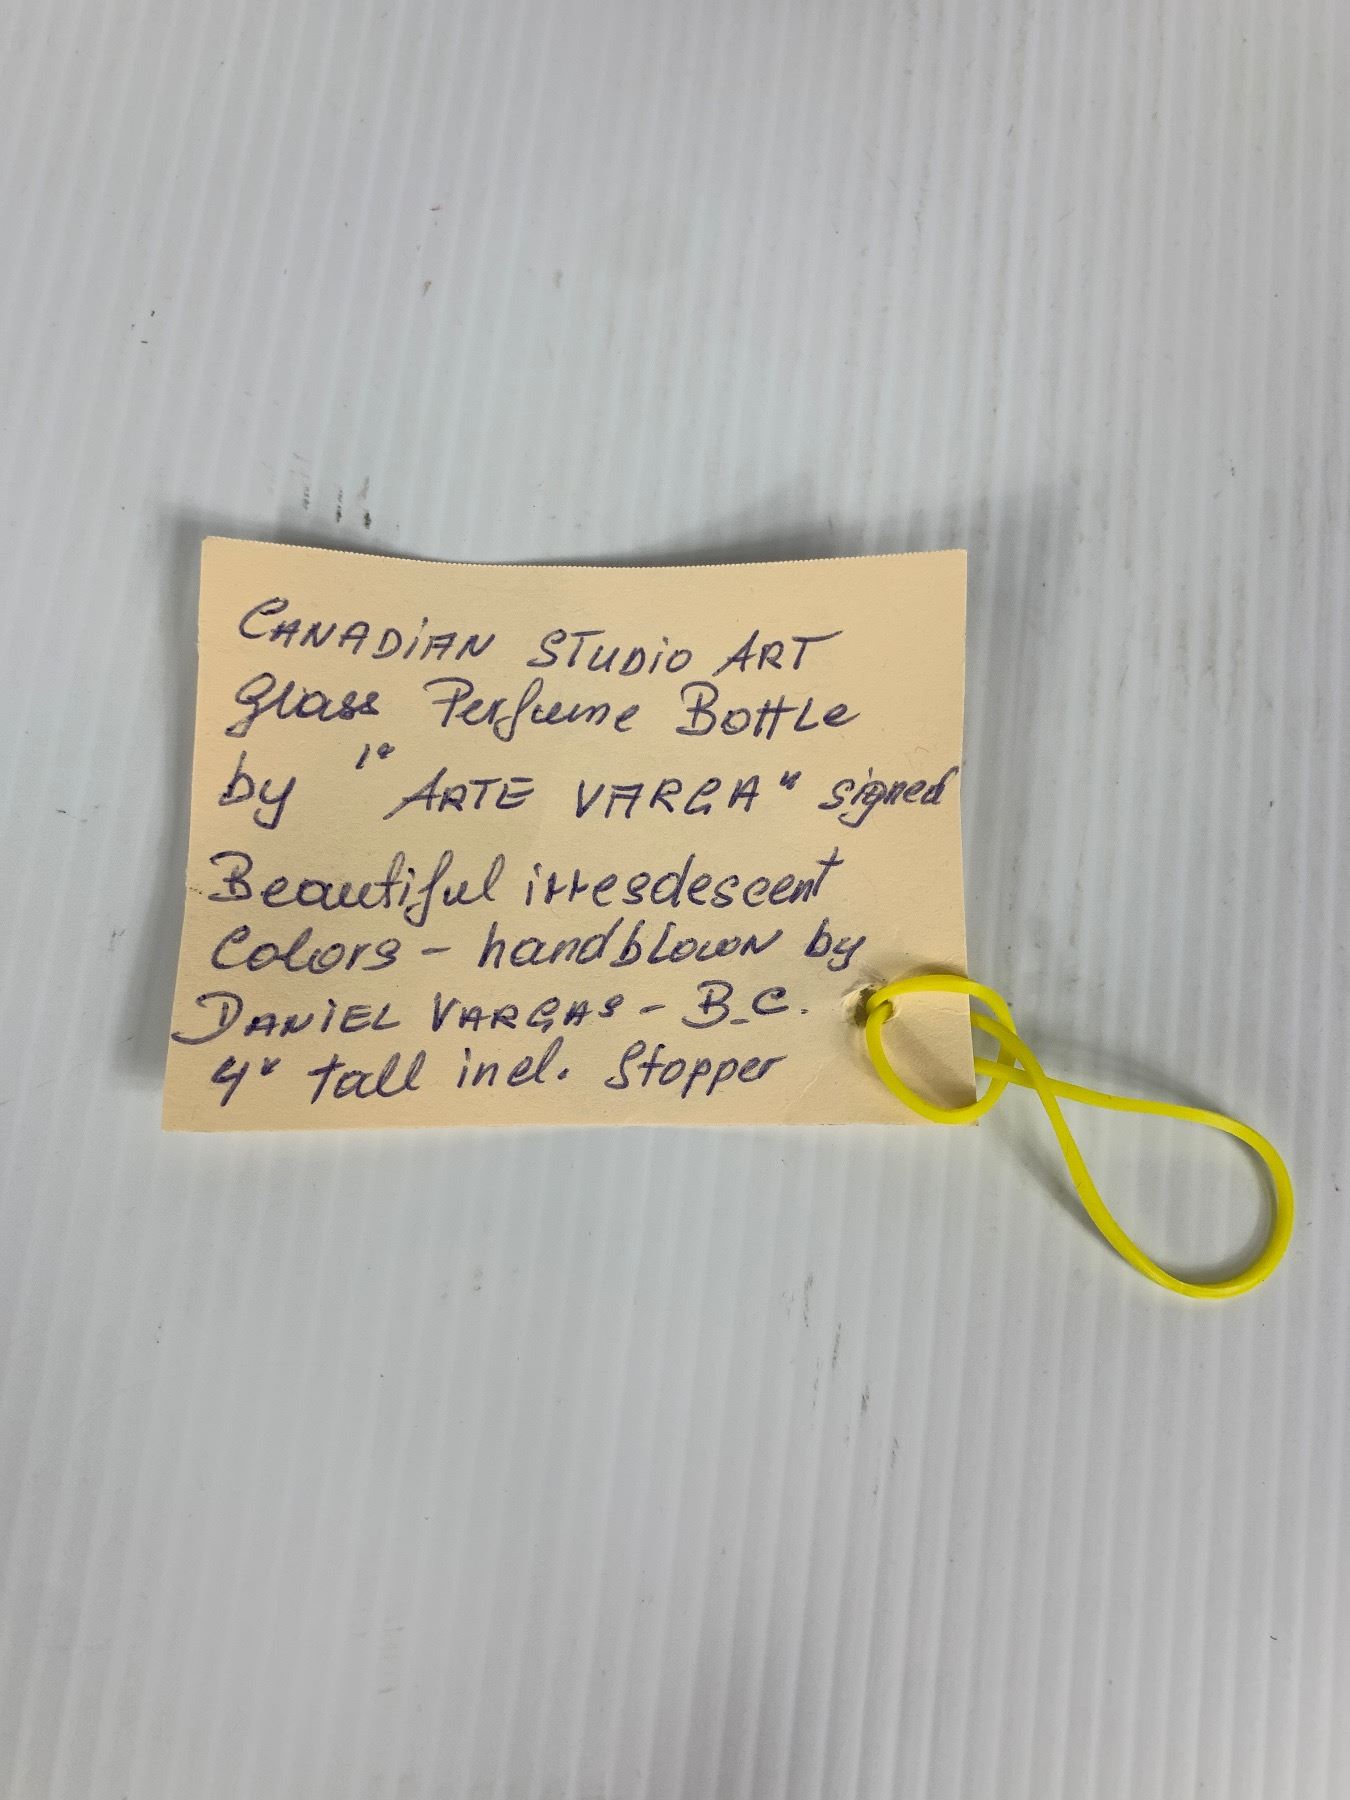 CANADIAN STUDIO ART
Glass Perfume Bottle
by "ARTE VARGA" signed
Beautiful irresdescent
Colors - handblown by
DANIEL VARGAS - B.C.
4" tall incl. Stopper